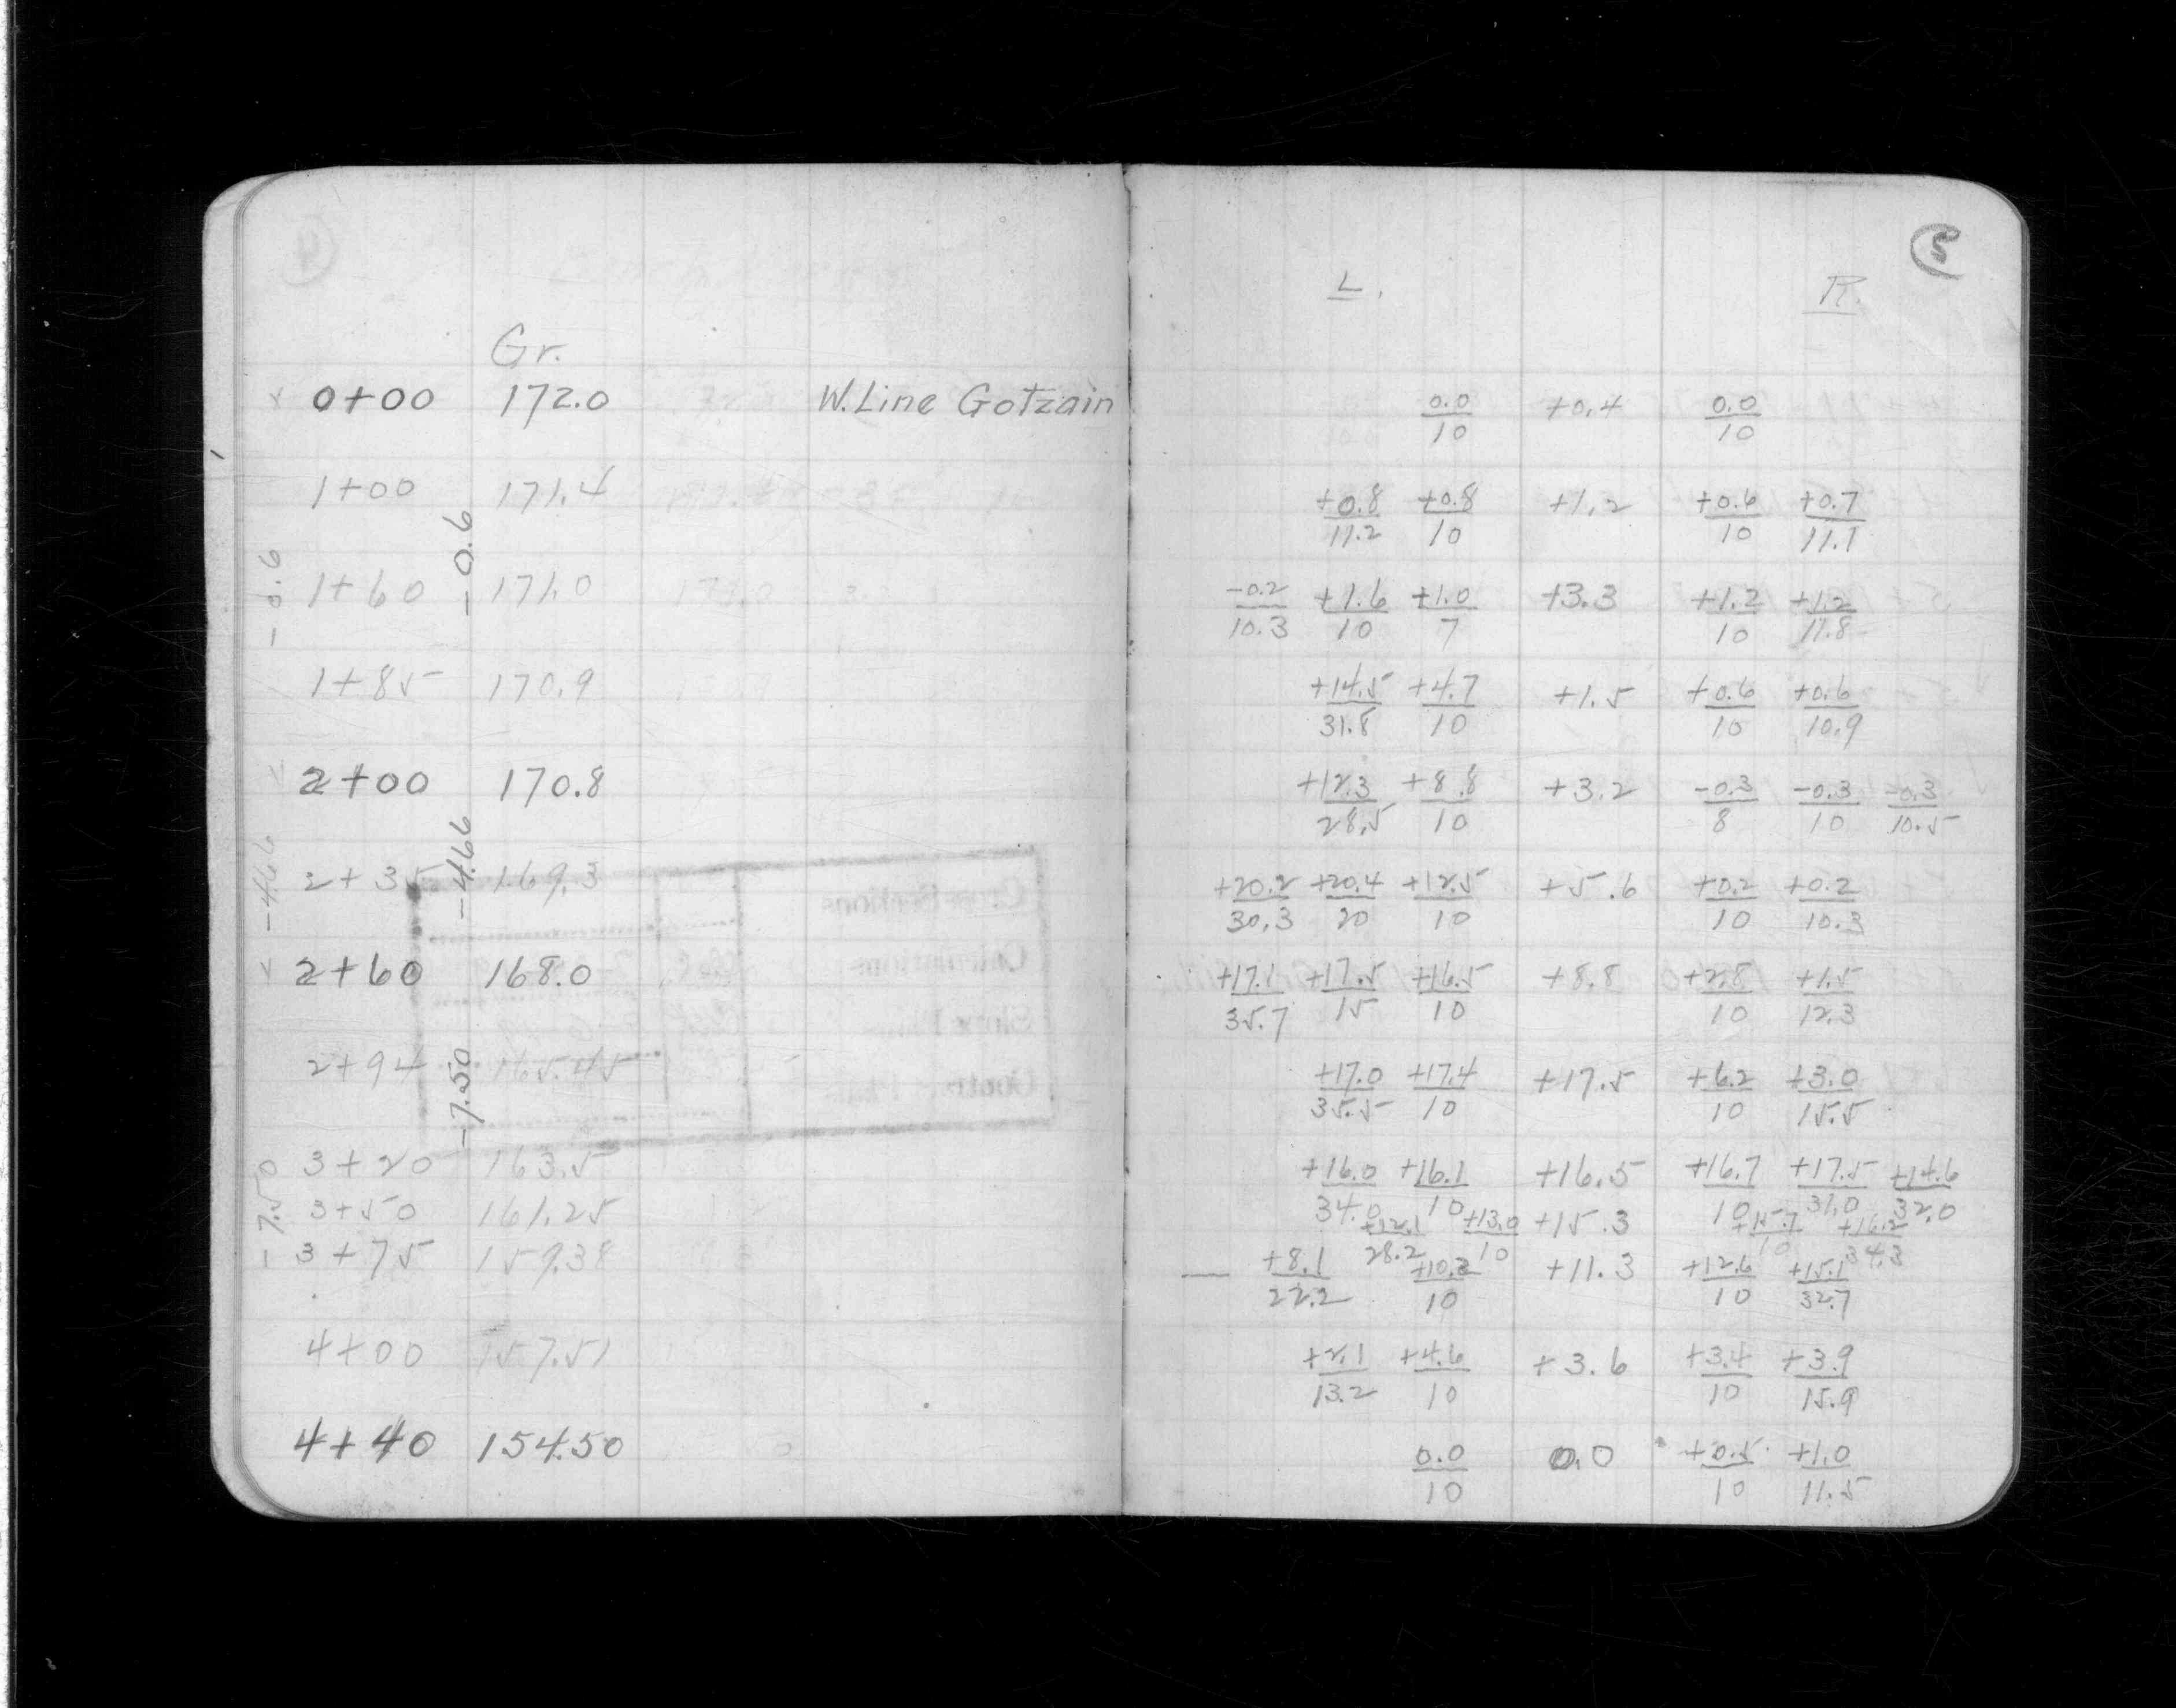 Gr.
0+00 172.0 W. Line Gotzain
1+00 171.4
-0.6
-0.6
1+60 171.0
1+85 170.9
2+00 170.8
-4.66
-4.66
2+35 169.3
2+60 168.0
2+94 165.45
-7.50
-7.50
3+20 163.5
3+50 161.25
3+75 159.38
4+00 157.51
4+40 154.50
5
L. R.
0.0/10 +0.4 0.0/10
+0.8/11.2 +0.8/10 +1.2 +0.6/10 +0.7/11.1
-0.2/10.3 +1.6/10 +1.0/7 +3.3 +1.2/10 +1.2/11.8
+14.5/31.8 +4.7/10 +1.5 +0.6/10 +0.6/10.9
+12.3/28.5 +8.8/10 +3.2 -0.3/8 -0.3/10 -0.3/10.5
+20.2/30.3 +20.4/20 +12.5/10 +5.6 +0.2/10 +0.2/10.3
+17.1/35.7 +17.5/15 +16.5/10 +8.8 +2.8/10 +1.5/12.3
+17.0/35.5 +17.4/10 +17.5 +6.2/10 +3.0/15.5
+16.0/34.0 +16.1/10 +16.5 +16.7/10 +17.5/31.0 +14.6/32.0
+12.1/28.2 +13.0/10 +15.3 +15.7/10 +16.2/34.3
+8.1/22.2 +10.2/10 +11.3 +12.6/10 +15.1/32.7
+2.1/13.2 +4.6/10 +3.6 +3.4/10 +3.9/15.9
0.0/10 0.0 +0.5/10 +1.0/11.5